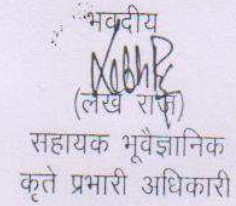 भवदीय
(लेख राज)
सहायक भूवैज्ञानिक
कृते प्रभारी अधिकारी